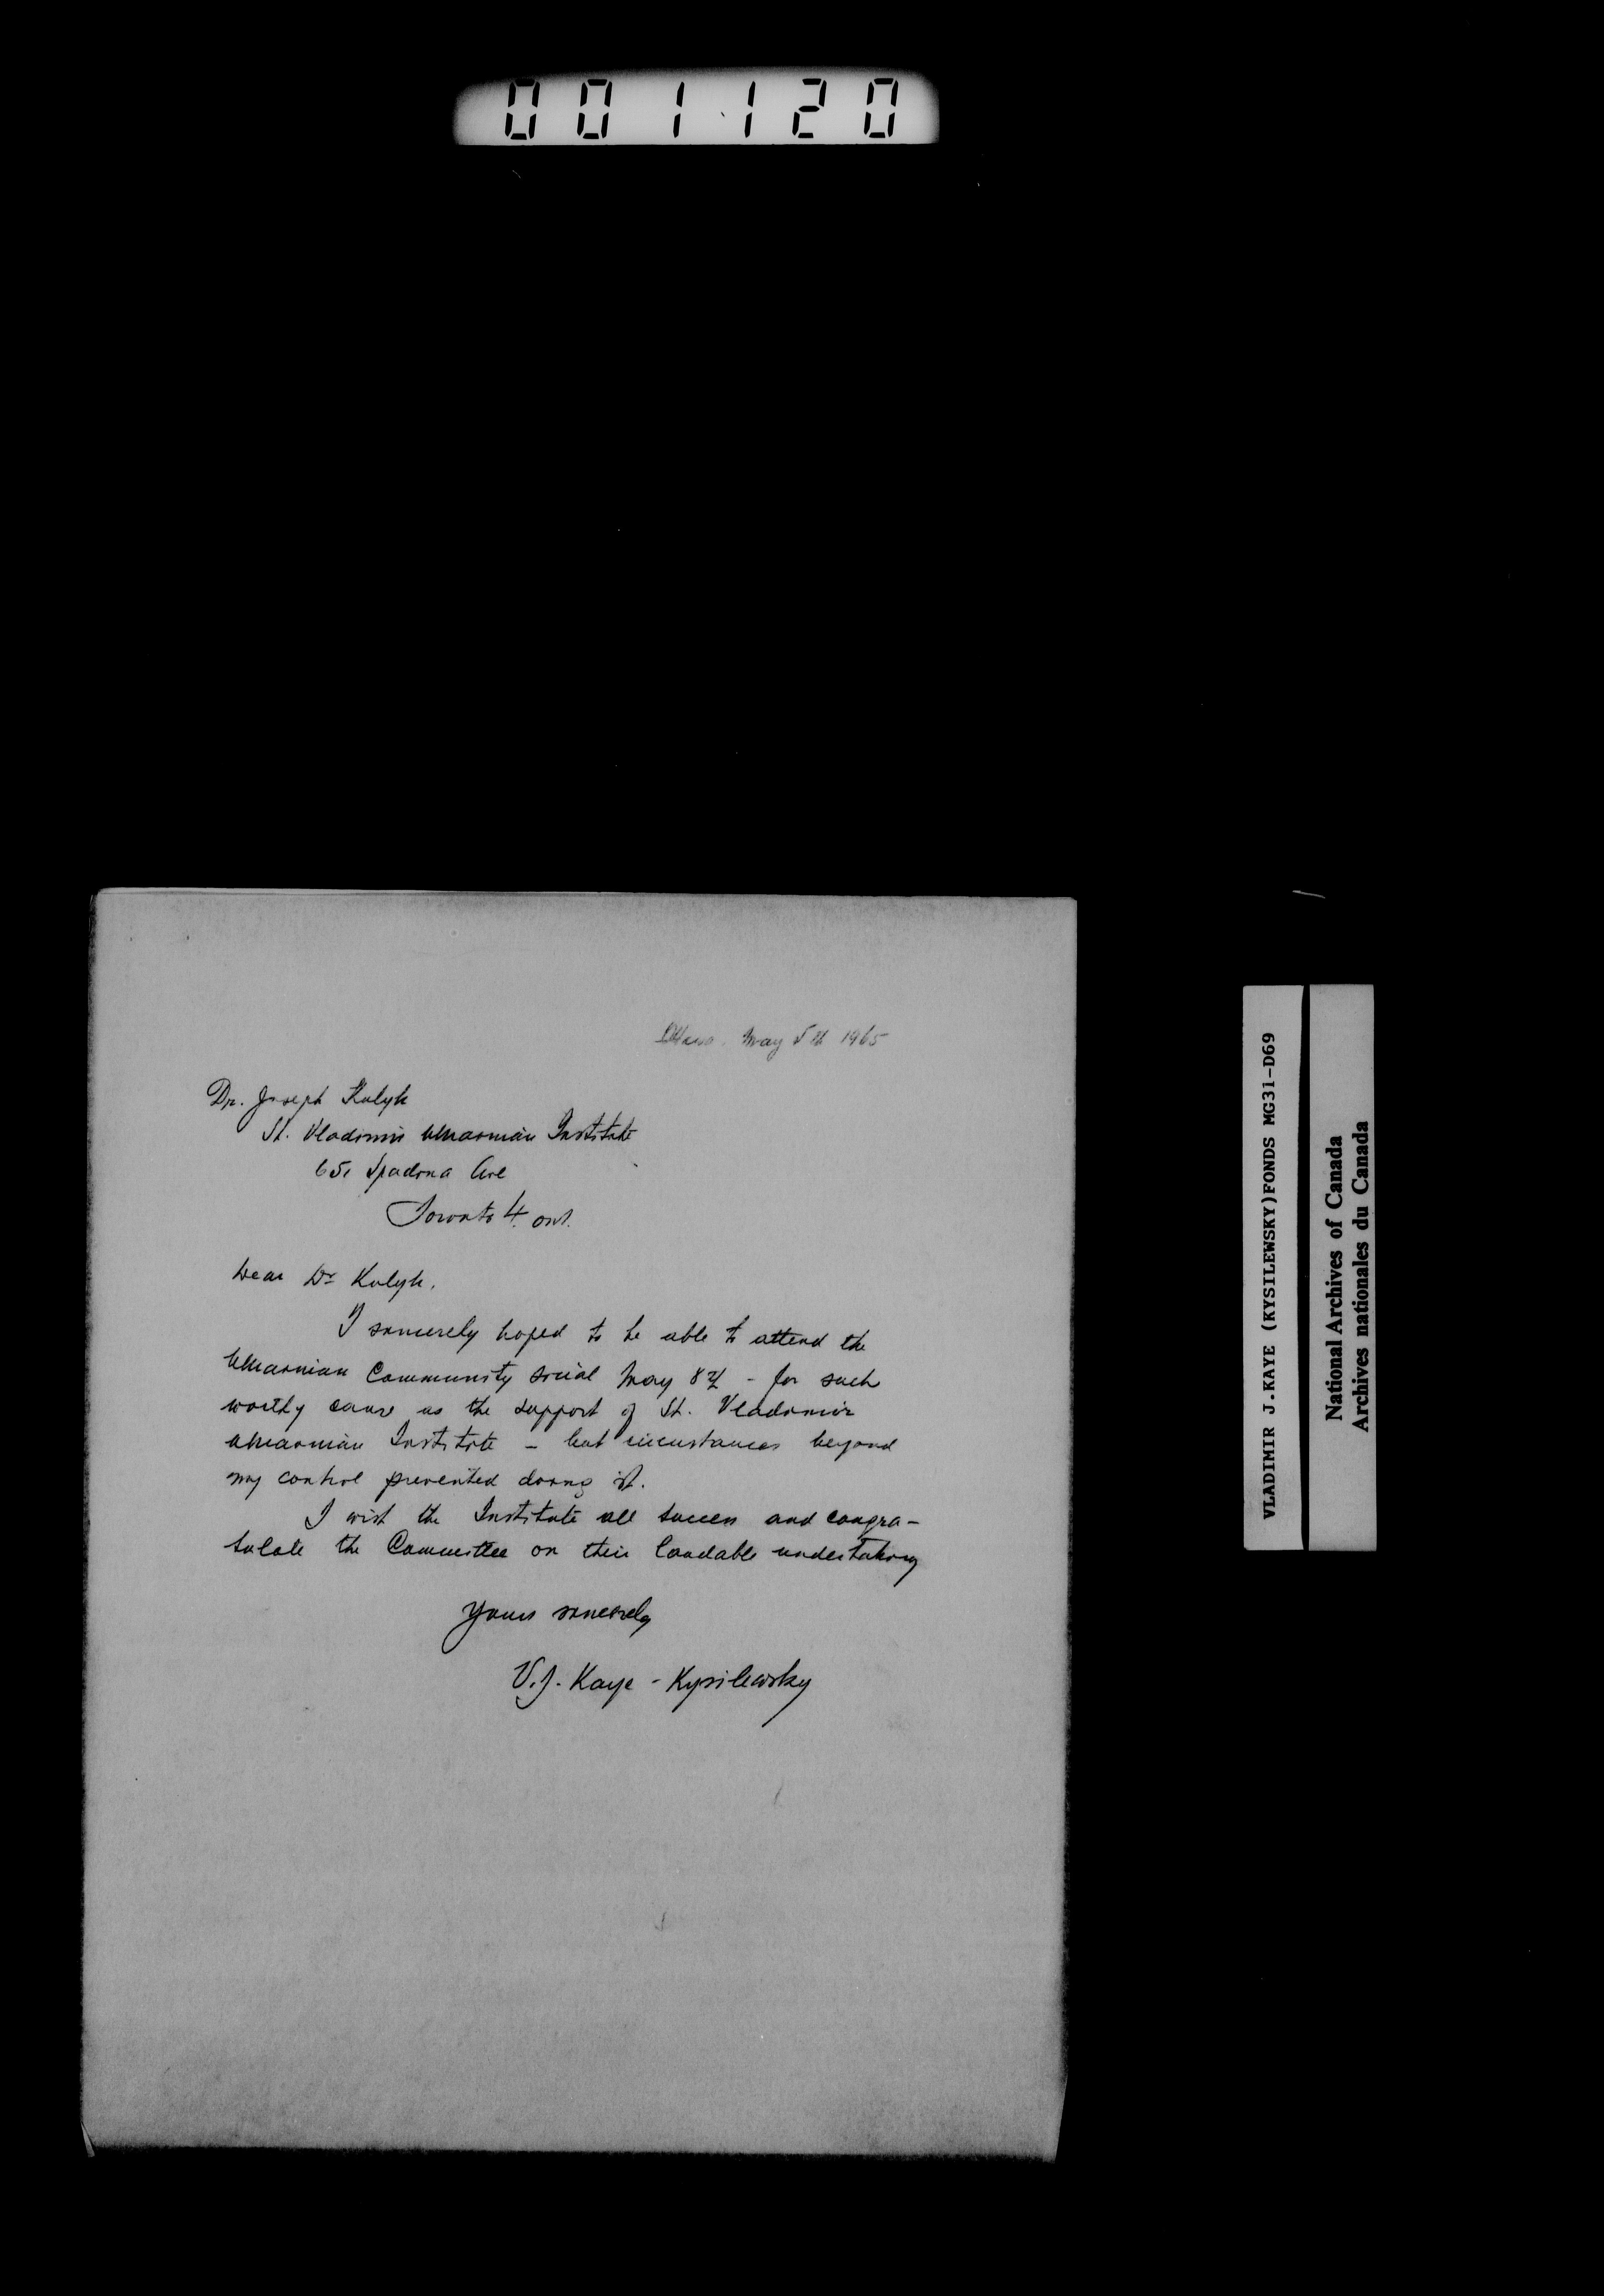 001120
Ottawa. May 5th 1965
Dr. Joseph Kulyk
St. Vladimir Ukrainian Institute
651 Spadina Ave
Toronto 4. Ont.
Dear Dr Kulyk.
I sincerely hoped to be able to attend the
Ukrainian Community social May 8th - for such
worthy cause as the support of St. Vladimir
Ukrainian Institute - but circumstances beyond
my control prevented doing it.
I wish the Institute all success and congra-
tulate the Committee on their laudable undertaking
Yours sincerely
V.J. Kaye - Kysilewsky
VLADIMIR J.KAYE (KYSILEWSKY)FONDS MG31-D69
National Archives of Canada
Archives nationales du Canada